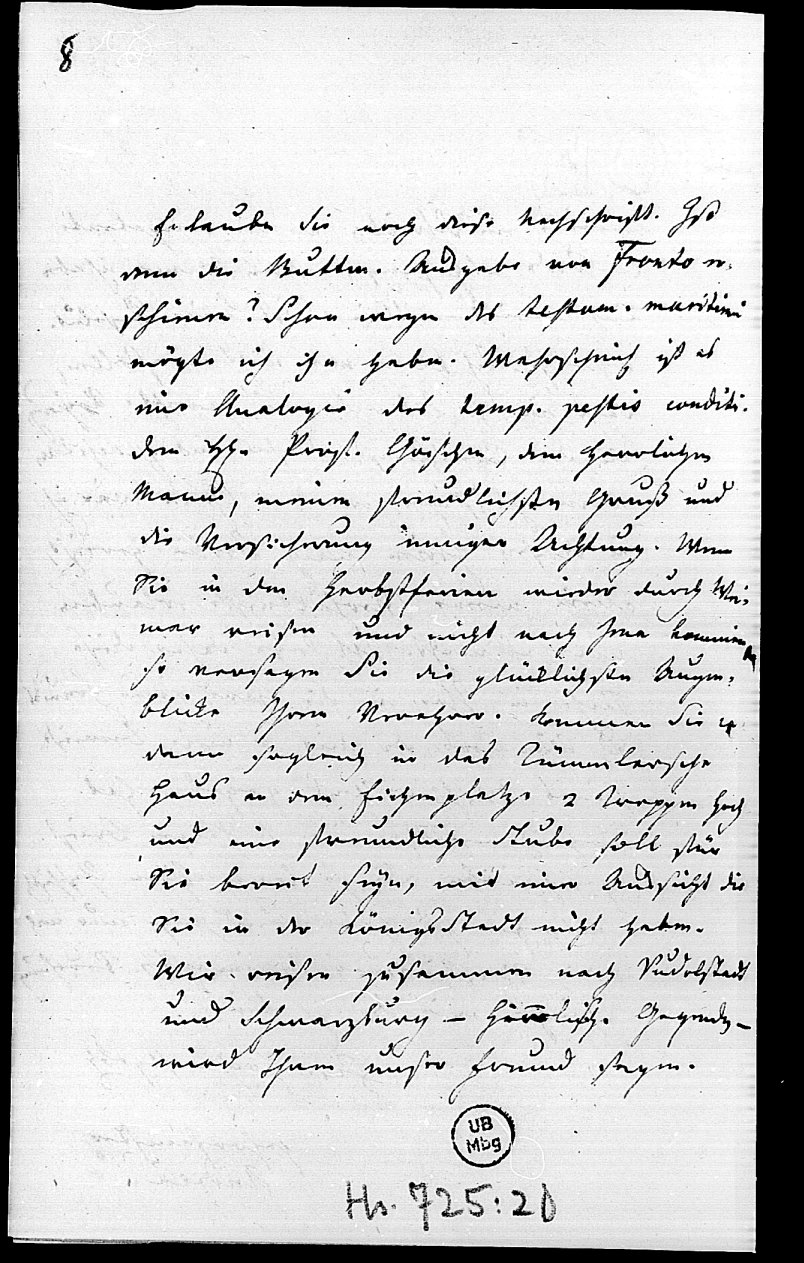 8
Erlauben Sie noch diese Nachschrift. Ist
denn die Buttm. Ausgabe von Fronto er-
schienen? Schon wegen des testam. maritimi
mögte ich ihn haben. Wahrscheinlich ist es
eine Analogie des temp. pestis conditi.
dem HHn Prof. Göschen, dem herrlichen
Manne, meinen freundlichsten Gruß und
die Versicherung inniger Achtung. Wenn
Sie in den Herbstferien wieder durch Wei-
mar reisen und nicht nach Jena kommen
so versagen Sie die glücklichsten Augen-
blicke Ihrem Verehrer. Kommen Sie
dann sogleich in das Tümmlersche
Haus an dem Eichenplatze 2 Treppen hoch
und eine freundliche Stube soll für
Sie bereit seyn, mit einer Aussicht die
Sie in der Königsstadt nicht haben.
Wir reisen zusammen nach Rudolstadt
und Schwarzburg – Herrliche Gegenden –
wird Ihnen unser Freund sagen.
UB
Mbg
Hs. 725:20